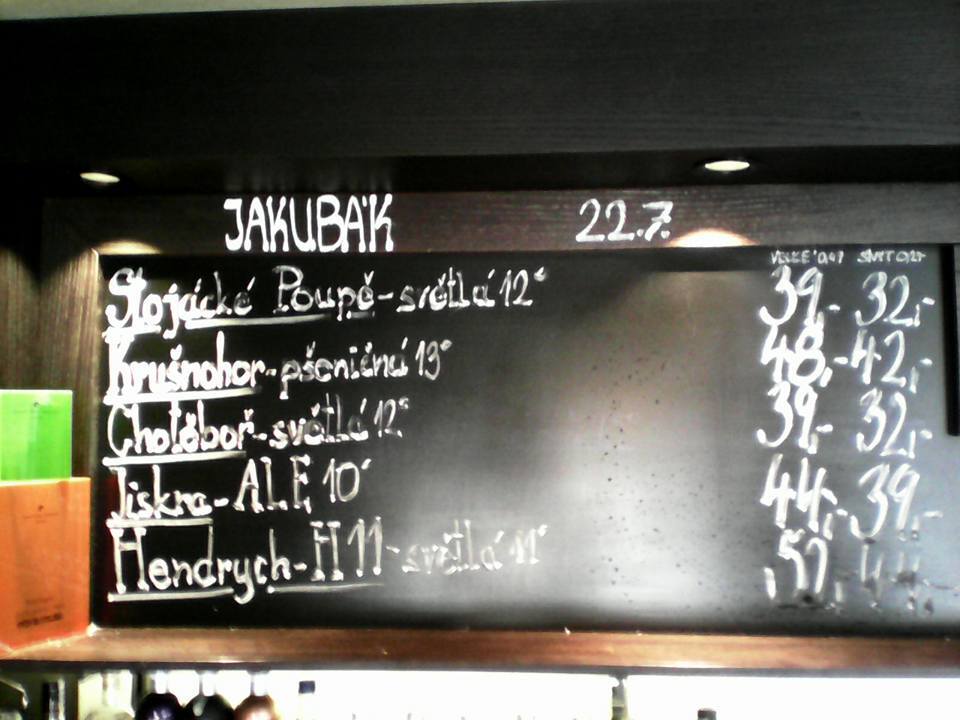 JAKUBÁK 22.7.
Stojácké Poupě - světlá 12° 39,- 32,-
Krušnohor - pšeničná 13° 48,- 42,-
Chotěboř - světlá 12° 39,- 32,-
Jiskra - ALE 10° 44,- 39,-
Hendrych - H11 - světlá 11° 44,-